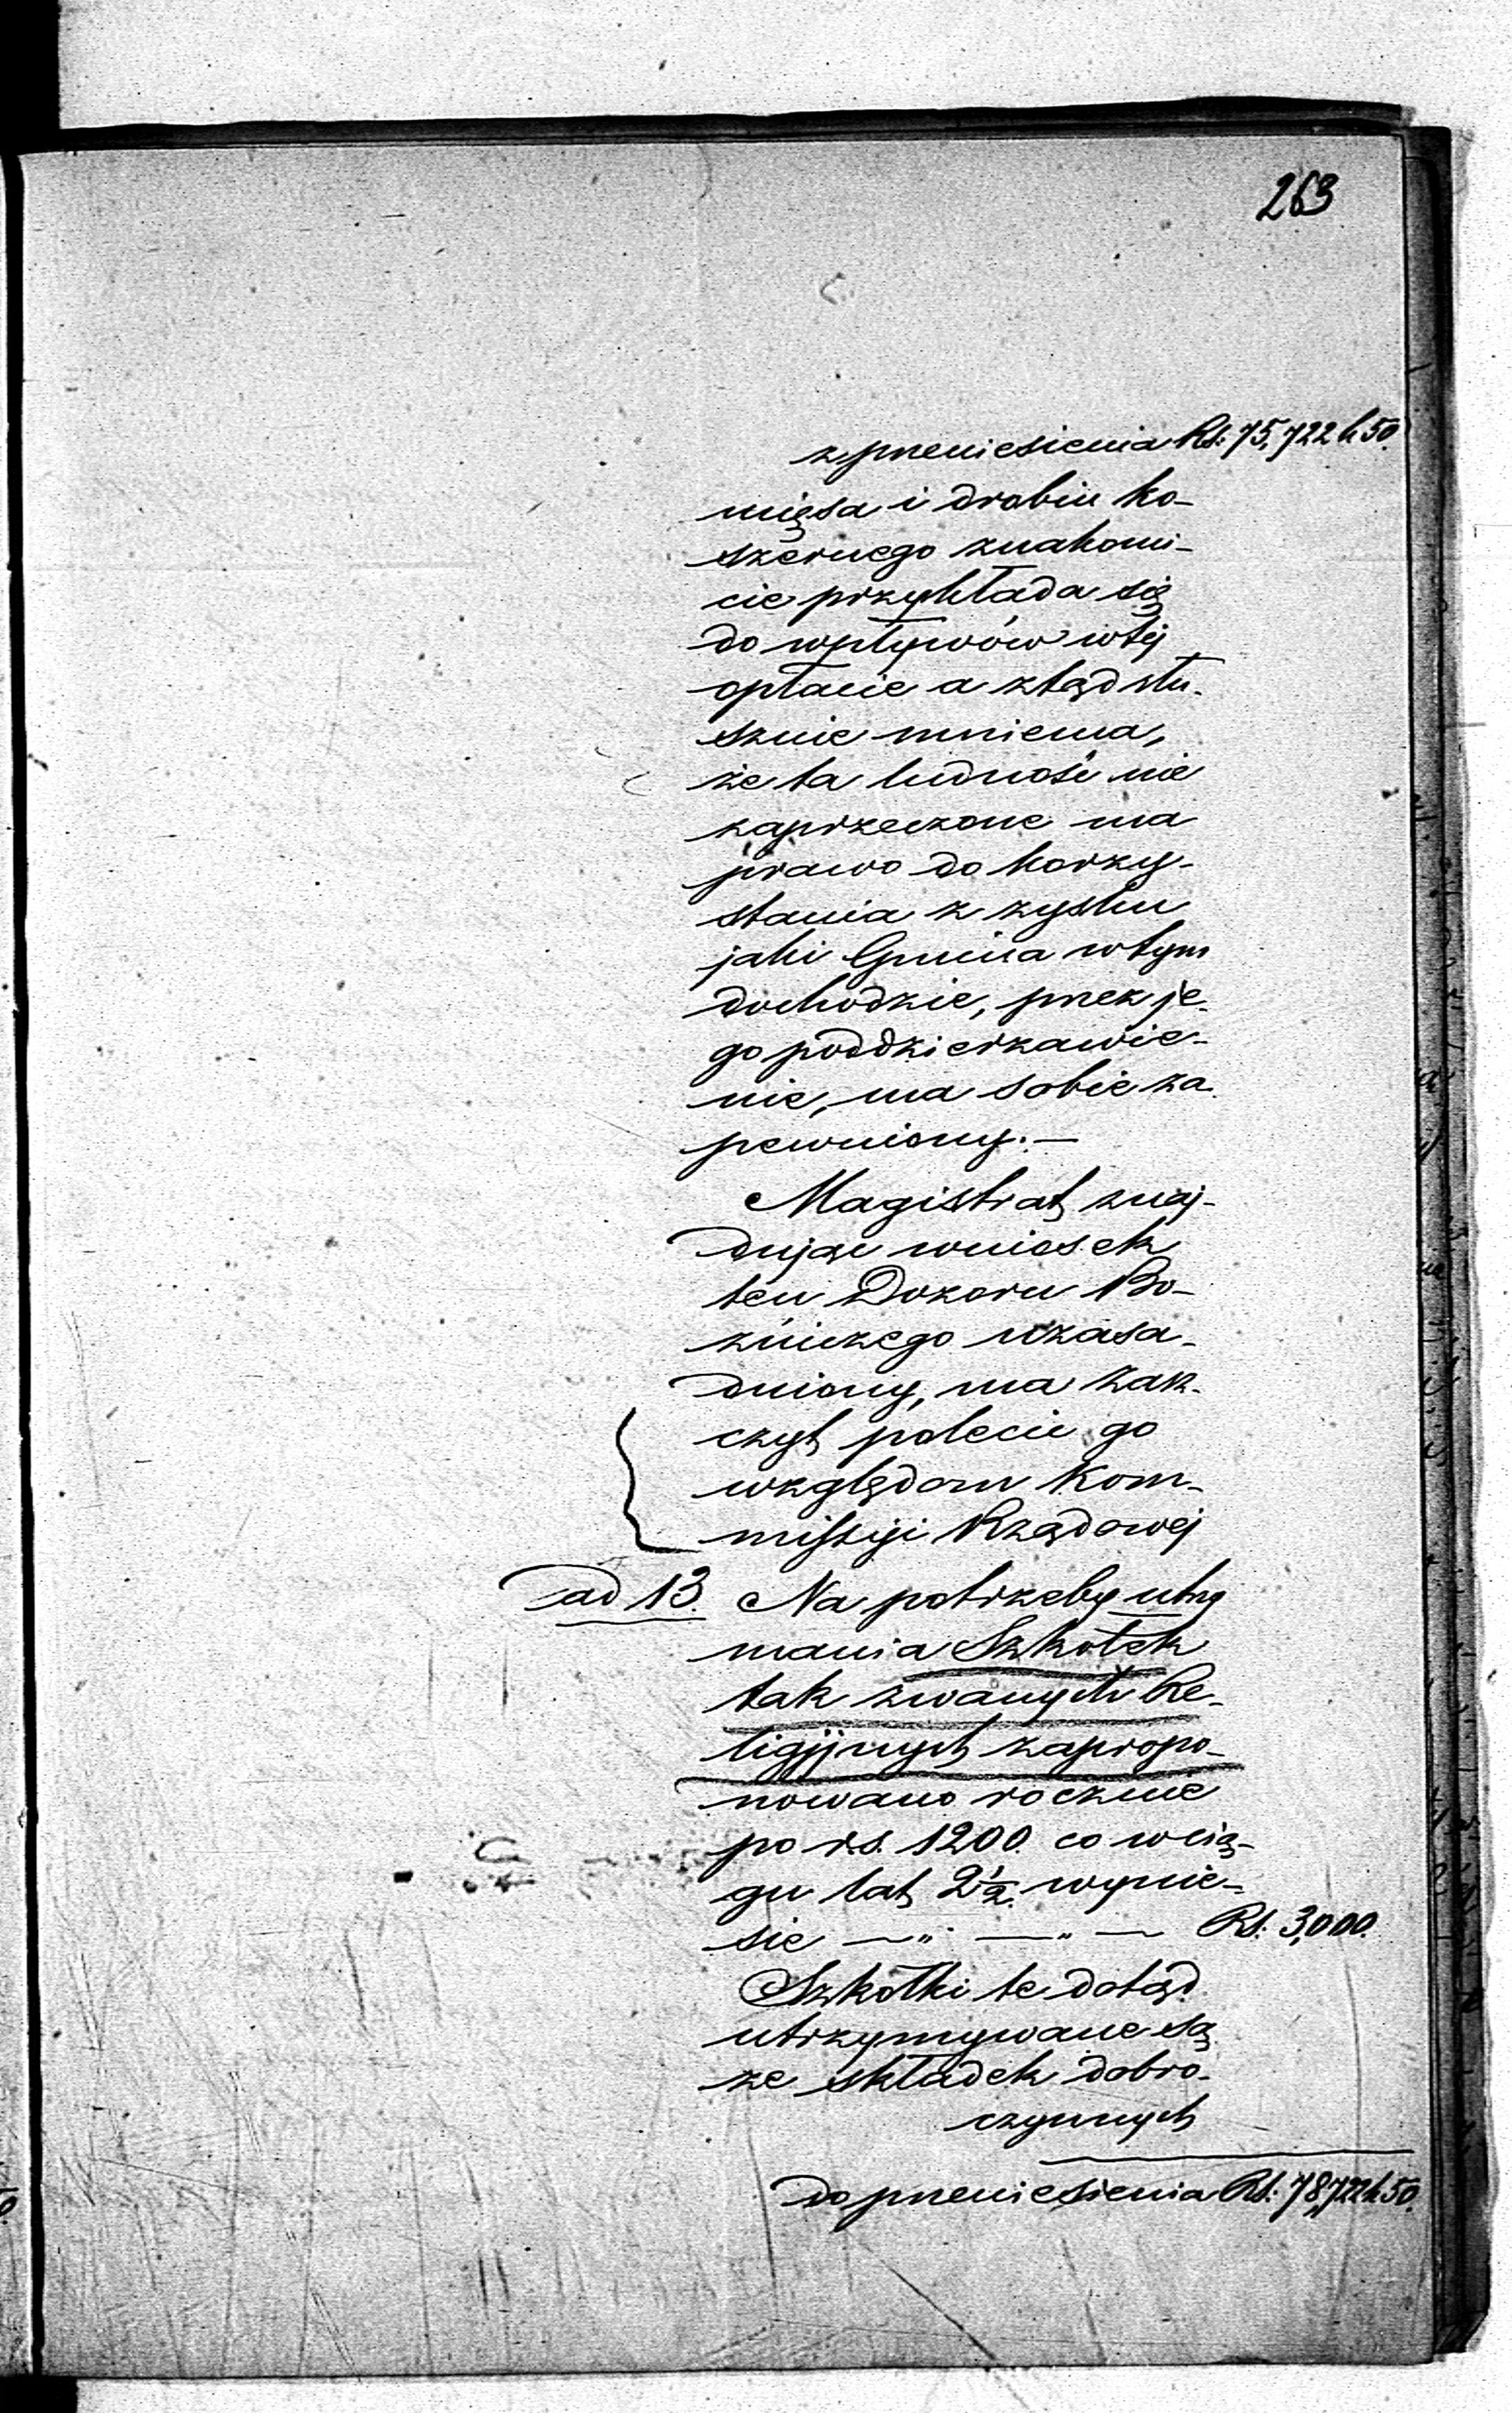 263
z przeniesienia Rs: 75,722 k 50.
mięsa i drobiu ko-
szernego znakomi-
cie przykłada się
do wpływów w tej
opłacie a ztąd słu-
sznie mniema,
że ta ludność nie
zaprzeczone ma
prawo do korzy-
stania z zysku
jaki Gmina w tym
dochodzie, przez je-
go poddzierzawie-
nie, ma sobie za
pewniony. —
Magistrat znaj-
dując wniosek
ten Dozoru Bo-
żniczego uzasa-
dniony, ma zasz-
czyt polecić go
względom Kom-
missyi Rządowej
ad 13. Na potrzeby utrzy
mania Szkółek
tak zwanych Re-
ligijnych zapropo-
nowano rocznie
po rs. 1200. co w cią-
gu lat 2½ wynie-
sie — „ — „ — Rs: 3,000.
Szkółki te dotąd
utrzymywane są
ze składek dobro-
czynnych
do przeniesienia Rs: 78,722 k 50.